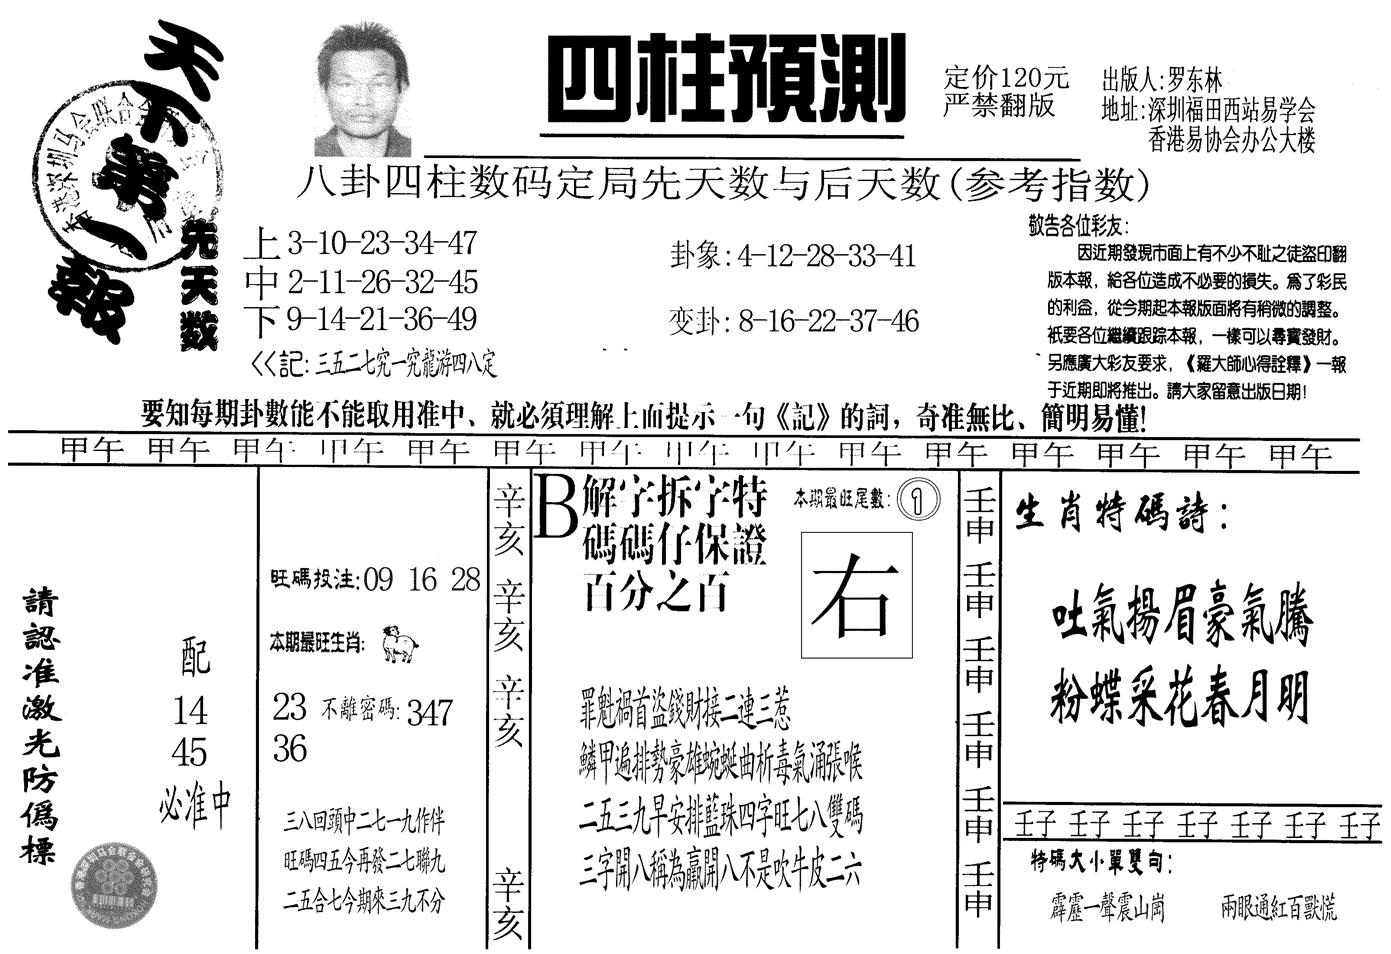 天下第一報
四柱預測
定价120元
严禁翻版
出版人:罗东林
地址:深圳福田西站易学会
香港易协会办公大楼
八卦四柱数码定局先天数与后天数(参考指数)
先天数
上 3-10-23-34-47
中 2-11-26-32-45
下 9-14-21-36-49
<<記:三五二七究一究龍游四八定
卦象:4-12-28-33-41
变卦:8-16-22-37-46
敬告各位彩友:
因近期發現市面上有不少不耻之徒盜印翻
版本報，給各位造成不必要的損失。爲了彩民
的利益，從今期起本報版面將有稍微的調整。
衹要各位繼續跟踪本報，一樣可以尋寶發財。
另應廣大彩友要求，《羅大師心得詮釋》一報
于近期即將推出。請大家留意出版日期!
要知每期卦數能不能取用准中、就必須理解上面提示一句《記》的詞，奇准無比、簡明易懂!
甲午 甲午 甲午 甲午 甲午 甲午 甲午 甲午 甲午 甲午 甲午 甲午 甲午 甲午 甲午
請認准激光防僞標
配
14
45
必准中
旺碼投注:09 16 28
本期最旺生肖:
23 不離密碼:347
36
三八回頭中二七一九作伴
旺碼四五今再發二七聯九
二五合七今期來三九不分
辛亥 辛亥 辛亥 辛亥
B 解字拆字特
碼碼仔保證
百分之百
本期最旺尾數:①
右
罪魁禍首盜錢財接二連三惹
鱗甲遍排勢豪雄蜿蜒曲析毒氣涌張喉
二五三九早安排藍珠四字旺七八雙碼
三字開八稱為贏開八不是吹牛皮二六
壬申 壬申 壬申 壬申 壬申 壬申
生肖特碼詩:
吐氣揚眉豪氣騰
粉蝶采花春月明
壬子 壬子 壬子 壬子 壬子 壬子 壬子
特碼大小單雙句:
霹靂一聲震山崗 兩眼通紅百獸慌